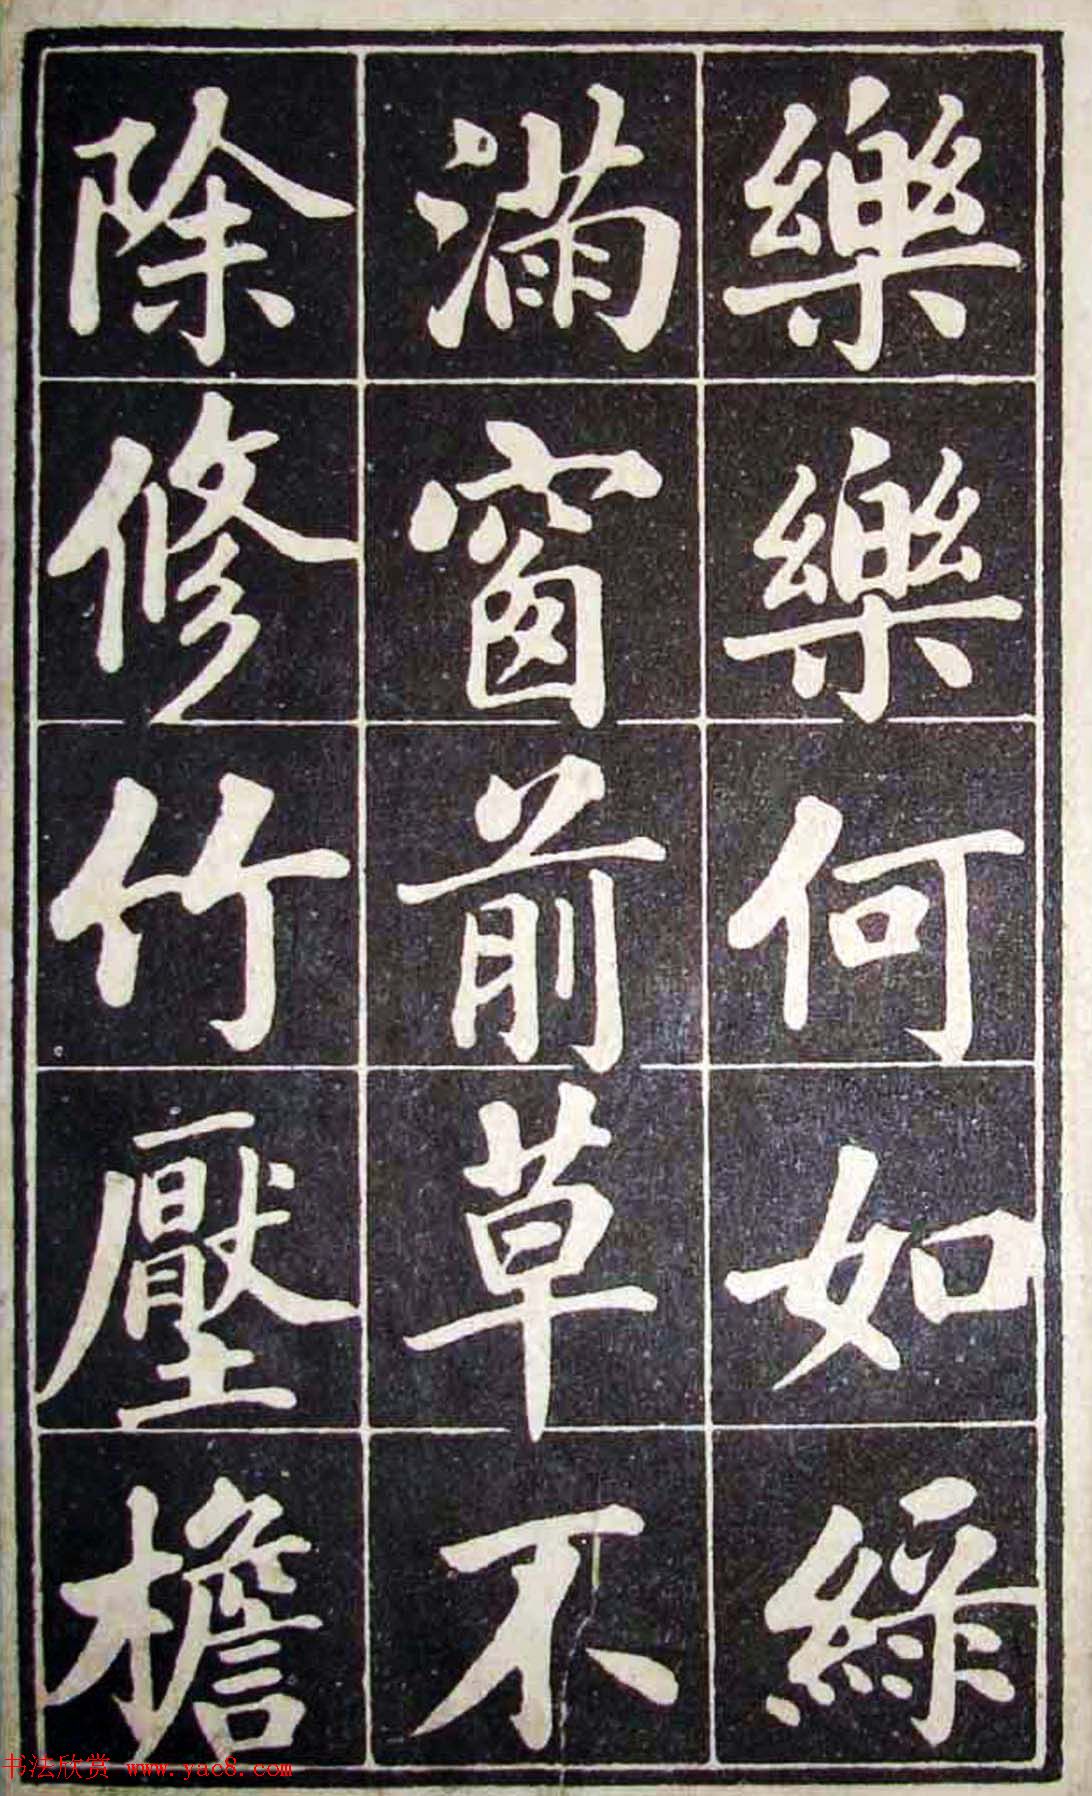 樂樂何如綠
滿窗前草不
除修竹壓檐
书法欣赏 www.yac8.com